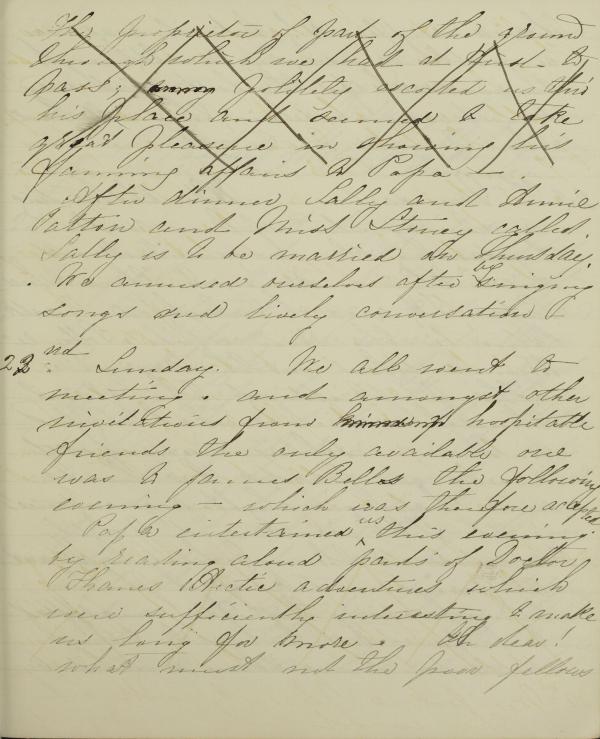 The proprietor of part of the ground
through which we had at first to
pass; politely escorted us thro
his place and seemed to take
great pleasure in showing his
farming affairs to Papa —.
After dinner Sally and Annie
Patton and Miss Stoney called.
Sally is to be married on Thursday.
We amused ourselves after by singing
songs and lively conversation
22nd. Sunday. We all went to
meeting. and amongst other
invitations from hospitable
friends the only available one
was to James Bells the following
evening — which was therefore accepted
Papa entertained us this evening
by reading aloud parts of Doctor
Kanes Arctic adventures which
were sufficiently interesting to make
us long for more. Oh dear!
what must not the poor fellows